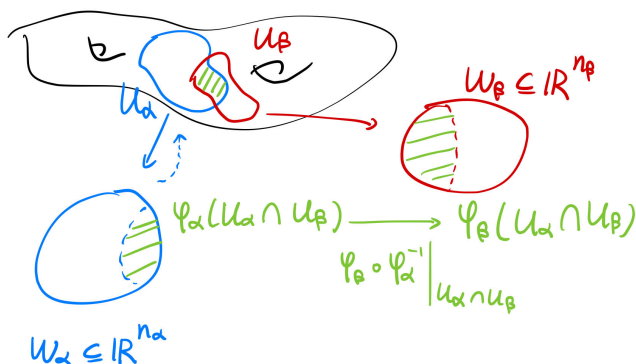 U_β
U_α
W_β ⊆ ℝ^{n_β}
φ_α(U_α ∩ U_β) ⟶ φ_β(U_α ∩ U_β)
φ_β ∘ φ_α^{-1} |_{U_α ∩ U_β}
W_α ⊆ ℝ^{n_α}